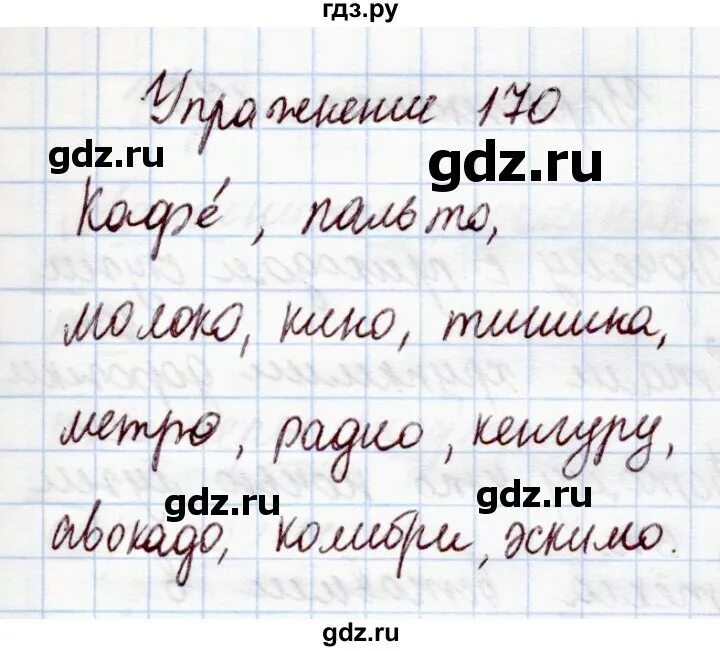 гдз.ру
Упражнение 170
gdz.ru
gdz.ru
Кафе́, пальто,
молоко, кино, тишина,
метро, радио, кенгуру,
gdz.ru
gdz.ru
авокадо, колибри, эскимо.
gdz.ru